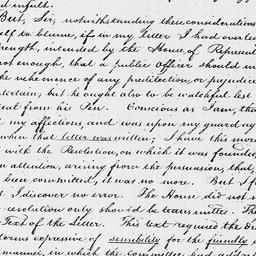 nd insult.
But, Sir, notwithstanding these considerations
elf to blame, if in my Letter I had overlea
rength, intended by the House of Represent
not enough, that a public Officer should in
the vehemence of any predilection, or prejudice
tertain, but he ought also to be watchful lest
cent from his Pen. Conscious as I am, tha
my affections, and was upon my guard ag
when that letter was written; I have this mor
with the Resolution, on which it was founded,
on attention, arising from the persuasion, that,
been committed, it was no more. But I f
I discover no error. The House did not
resolution only should be transmitted. The
Text of the Letter. This text required the
terms expressive of sensibility for the friendly
manner, in which the Committee had add